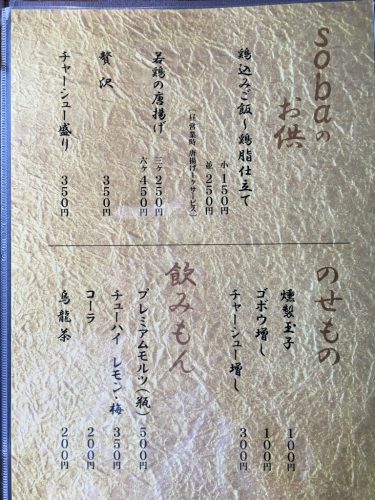 sobaの
お供
鶏込みご飯~鶏脂仕立て
小 150円
並 250円
(昼営業時 唐揚げ1ヶサービス)
若鶏の唐揚げ
三ヶ 250円
六ヶ 450円
贅沢
チャーシュー盛り
350円
350円
のせもの
燻製玉子 100円
ゴボウ増し 100円
チャーシュー増し 300円
飲みもん
プレミアムモルツ(瓶) 500円
チューハイ レモン・梅 350円
コーラ 200円
烏龍茶 200円